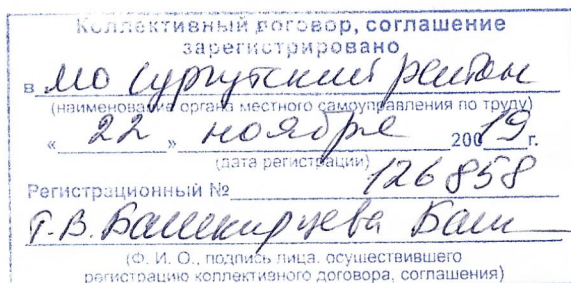 Коллективный договор, соглашение
зарегистрировано
в МО Сургутский район
(наименование органа местного самоуправления по труду)
« 22 » ноября 20019 г.
(дата регистрации)
Регистрационный № 126858
Т.В. Башкирцева Баш
(Ф. И. О., подпись лица, осуществившего
регистрацию коллективного договора, соглашения)